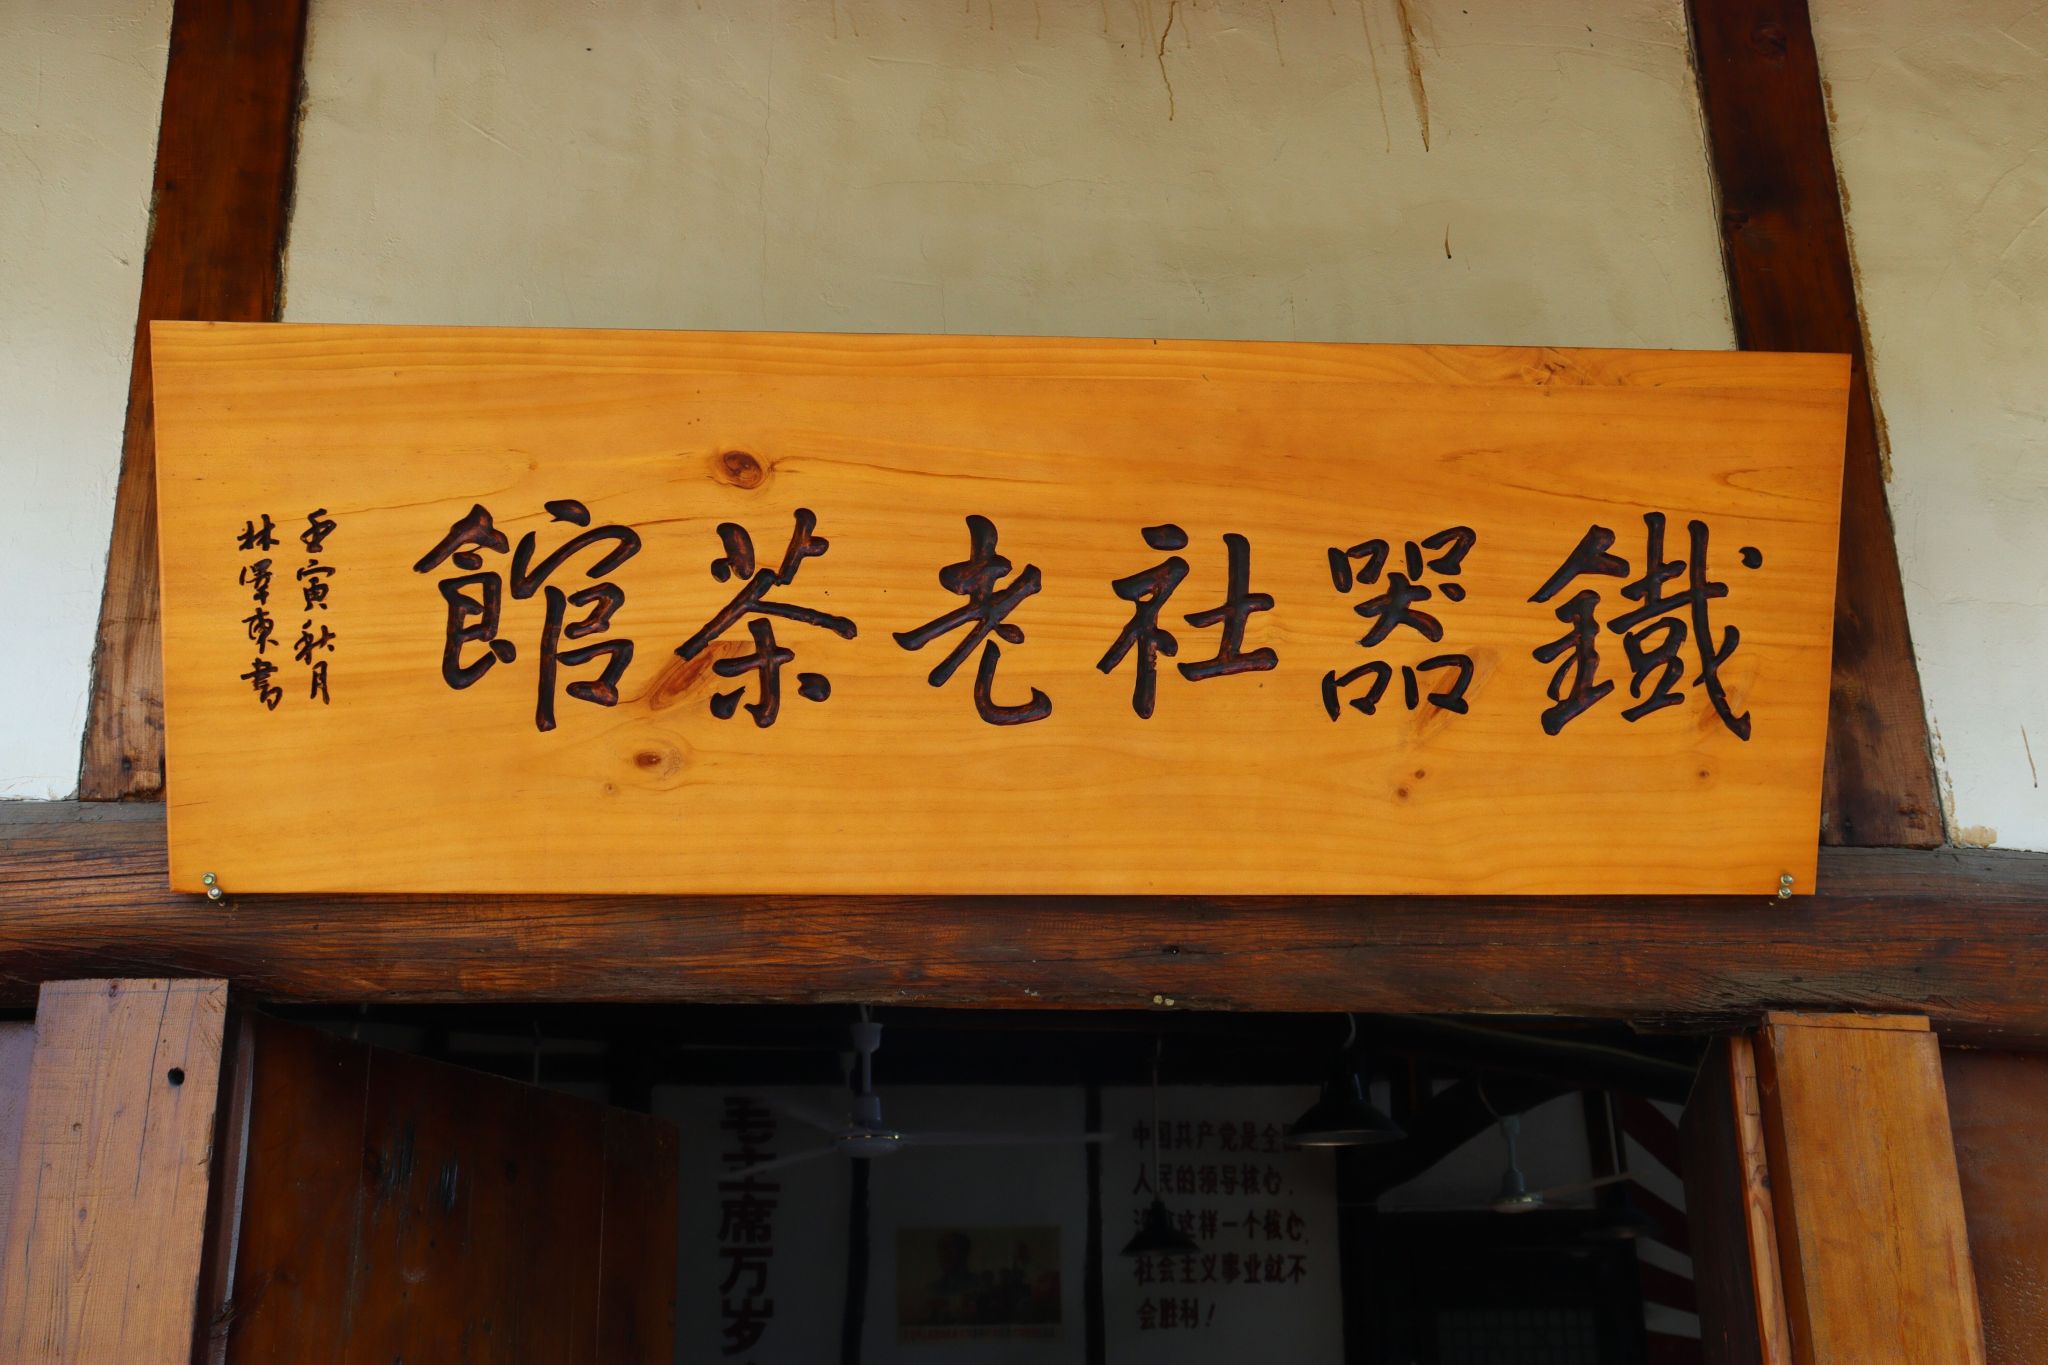 鐵器社老茶館
壬寅秋月
林澤東書
毛主席万岁
中国共产党是全国
人民的领导核心，
没有这样一个核心，
社会主义事业就不
会胜利！